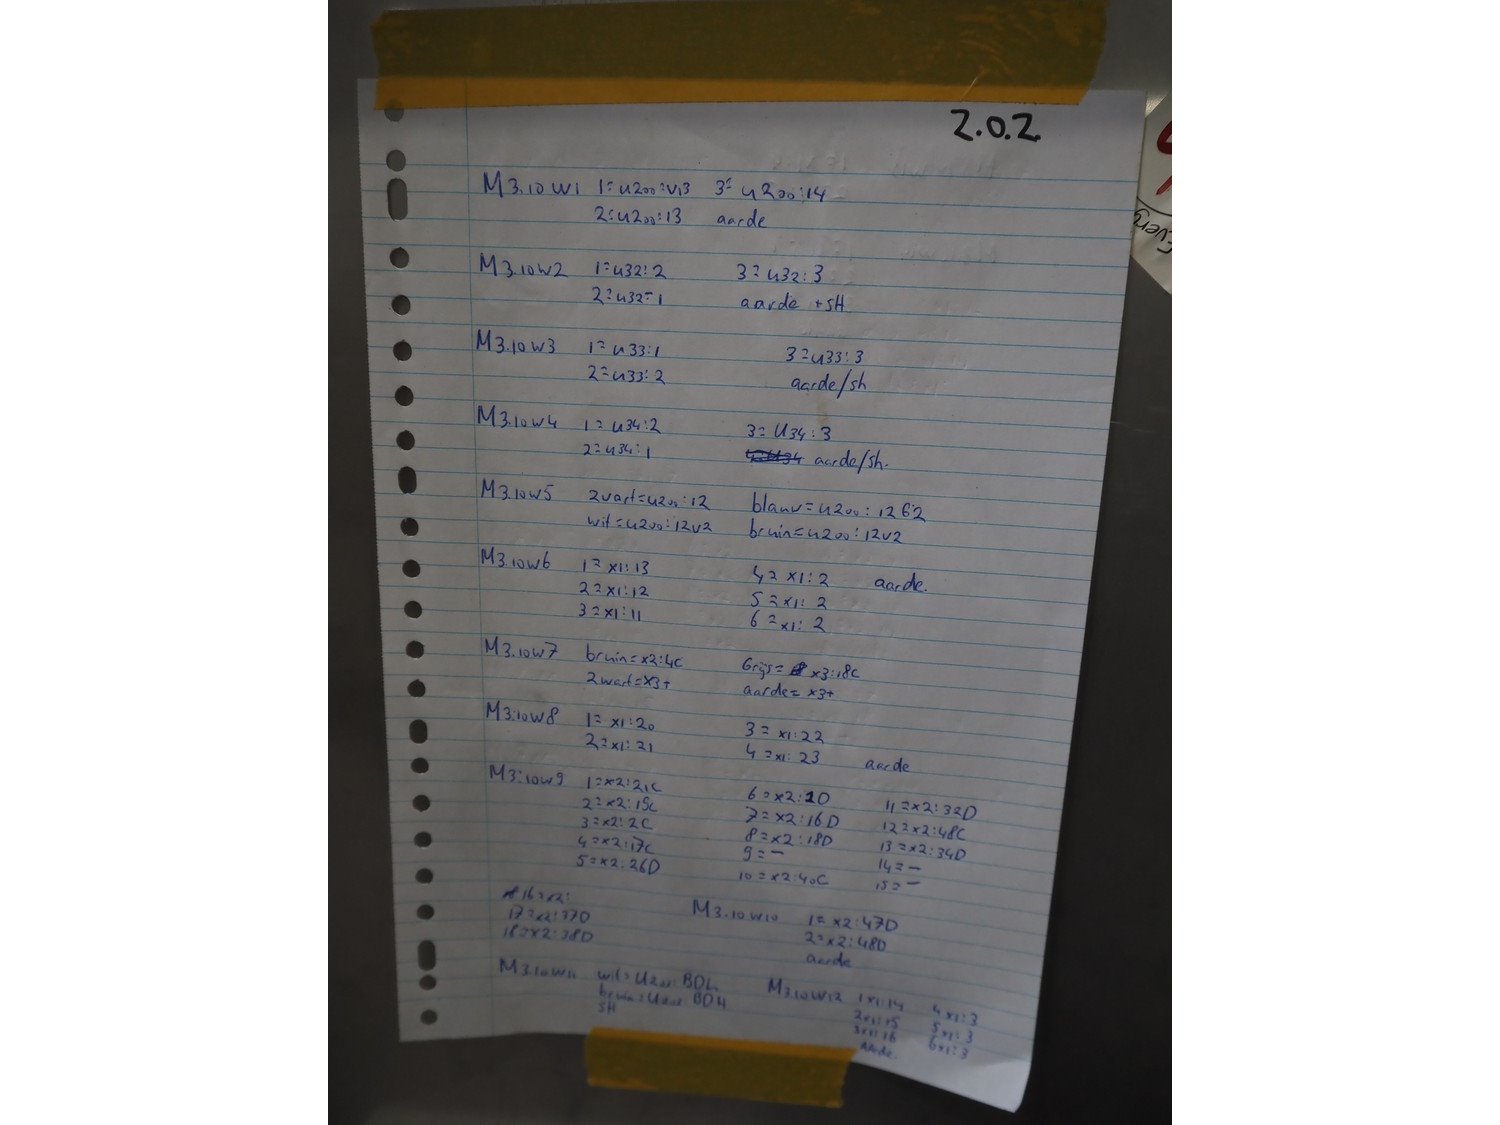 2.0.2
M3.10W1 1=U200:V13 3=U200:14
2=U200:13 aarde
M3.10W2 1=U32:2 3=U32:3
2=U32=1 aarde +SH
M3.10W3 1=U33:1 3=U33:3
2=U33:2 aarde/sh
M3.10W4 1=U34:2 3=U34:3
2=U34:1 aarde/sh.
M3.10W5 zwart=U200:12 blauw=U200:12
wit=U200:12V2 bruin=U200:12V2
M3.10W6 1=X1:13 4=X1:2 aarde.
2=X1:12 5=X1:2
3=X1:11 6=X1:2
M3.10W7 bruin=X2:4C Grijs=X3:18C
zwart=X3+ aarde=X3+
M3.10W8 1=X1:20 3=X1:22
2=X1:21 4=X1:23 aarde
M3:10W9 1=X2:21C 6=X2:2D 11=X2:32D
2=X2:15C 7=X2:16D 12=X2:48C
3=X2:2C 8=X2:18D 13=X2:34D
4=X2:17C 9=- 14=-
5=X2:26D 10=X2:40C 15=-
16=X2:
17=X2:37D M3.10W10 1=X2:47D
18=X2:38D 2=X2:48D
aarde
M3.10W11 wit=U200:BD4 M3.10W12 1X1:14 4X1:3
bruin=U200 BD4 2X1:15 5X1:3
SH 3X1:16 6X1:3
Aarde.
Everg